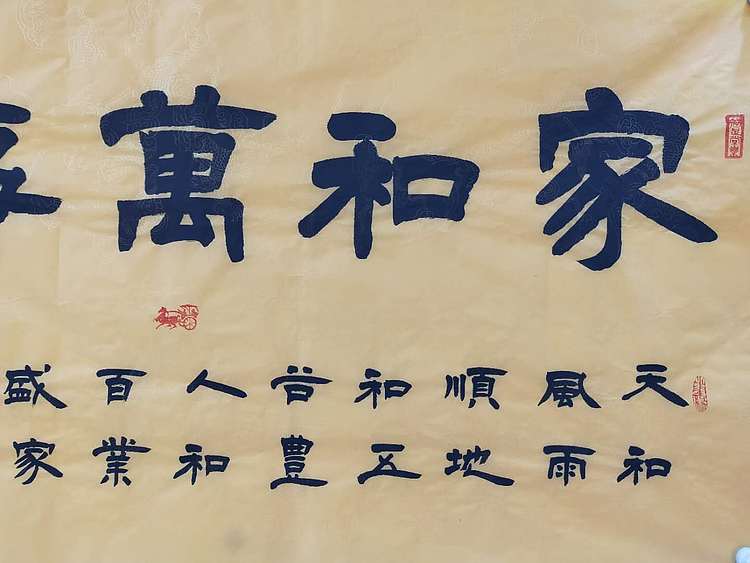 家和萬
天和
風雨
順地
和五
谷豐
人和
百業
盛家